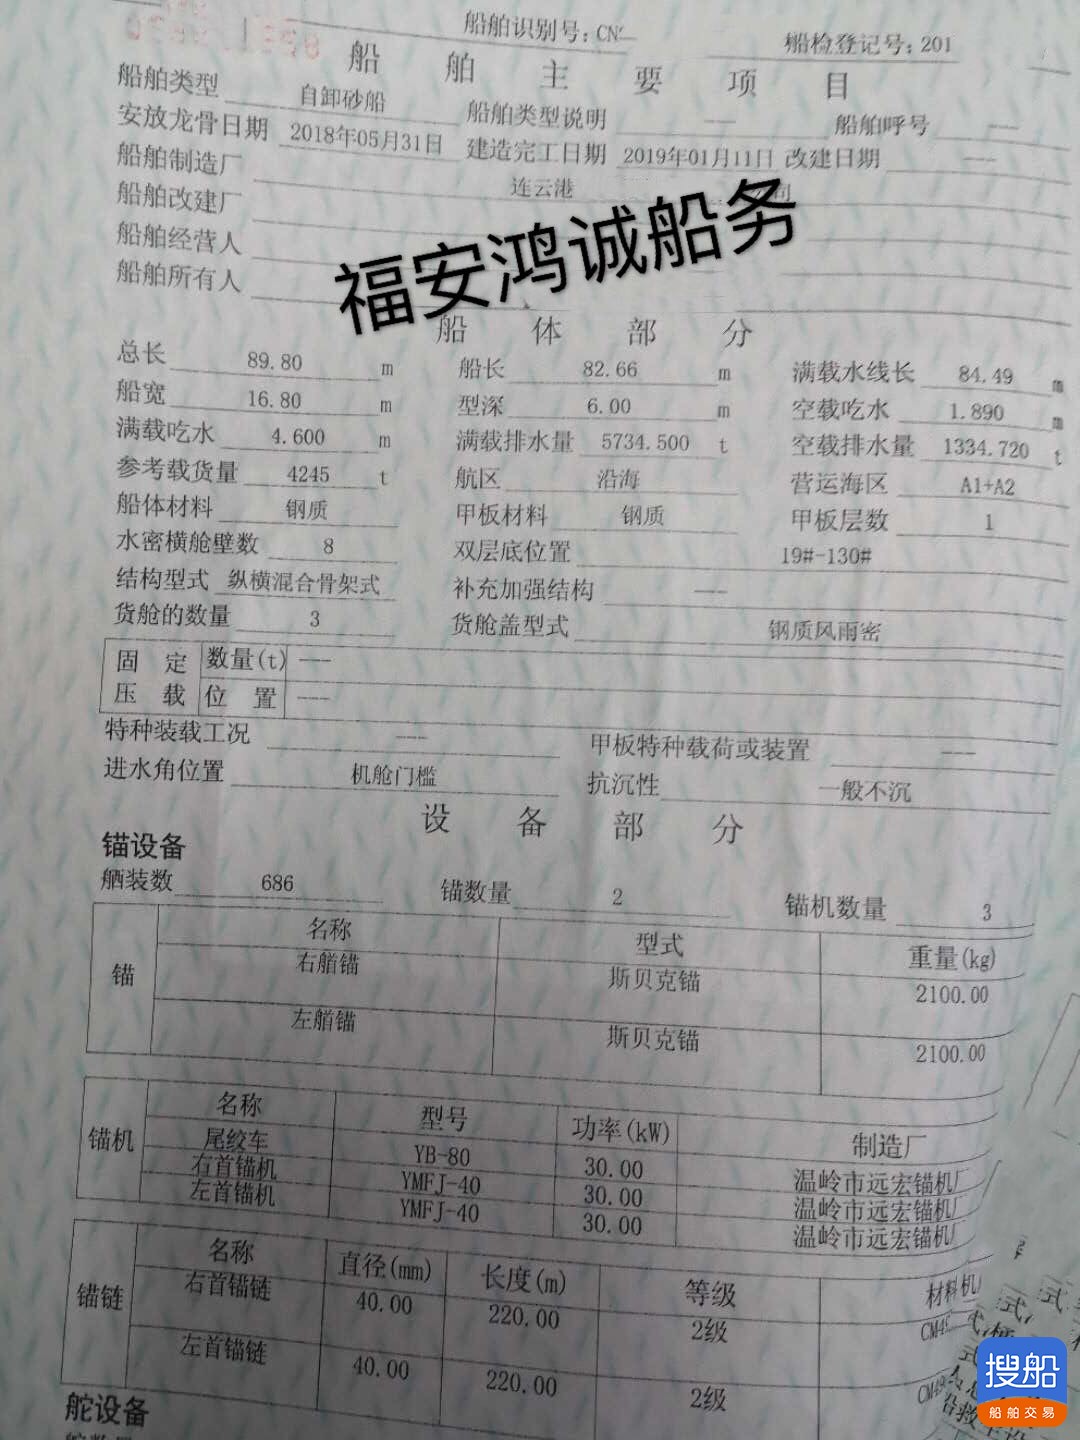 船舶识别号: CN 船检登记号: 201
船舶主要项目
船舶类型 自卸砂船 船舶类型说明 --- 船舶呼号 ---
安放龙骨日期 2018年05月31日 建造完工日期 2019年01月11日 改建日期 ---
船舶制造厂 连云港 司
船舶改建厂
船舶经营人
船舶所有人
福安鸿诚船务
船体部分
总长 89.80 m 船长 82.66 m 满载水线长 84.49 m
船宽 16.80 m 型深 6.00 m 空载吃水 1.890 m
满载吃水 4.600 m 满载排水量 5734.500 t 空载排水量 1334.720 t
参考载货量 4245 t 航区 沿海 营运海区 A1+A2
船体材料 钢质 甲板材料 钢质 甲板层数 1
水密横舱壁数 8 双层底位置 19#-130#
结构型式 纵横混合骨架式 补充加强结构 ---
货舱的数量 3 货舱盖型式 钢质风雨密
固定压载 数量(t) ---
位置 ---
特种装载工况 --- 甲板特种载荷或装置 ---
进水角位置 机舱门槛 抗沉性 一般不沉
设备部分
锚设备
舾装数 686 锚数量 2 锚机数量 3
锚 名称 型式 重量(kg)
右艏锚 斯贝克锚 2100.00
左艏锚 斯贝克锚 2100.00
锚机 名称 型号 功率(kW) 制造厂
尾绞车 YB-80 30.00 温岭市远宏锚机厂
右首锚机 YMFJ-40 30.00 温岭市远宏锚机厂
左首锚机 YMFJ-40 30.00 温岭市远宏锚机厂
锚链 名称 直径(mm) 长度(m) 等级 材料
右首锚链 40.00 220.00 2级
左首锚链 40.00 220.00 2级
舵设备
搜船
船舶交易